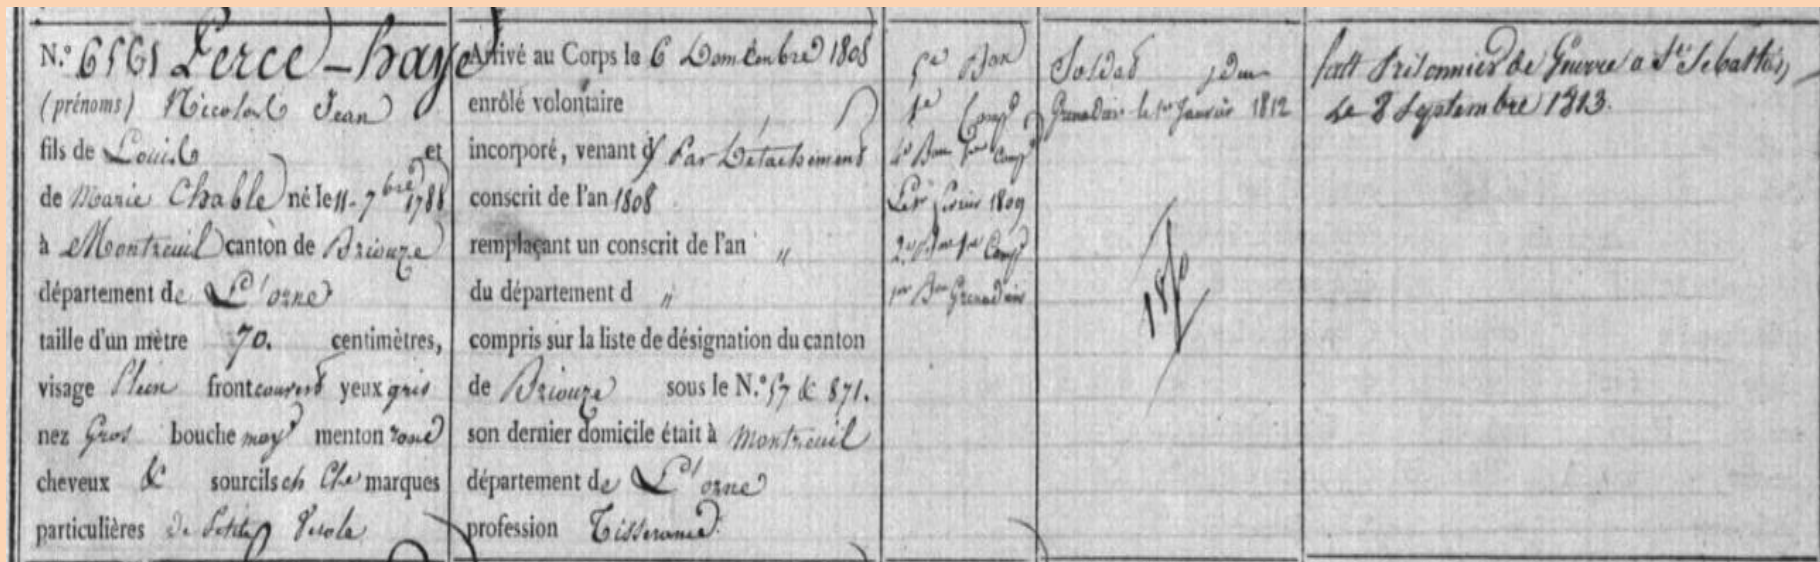 N.º 6561 Perce-haye
(prénoms) Nicolas Jean
fils de Louis et
de Marie Chable né le 11. 7bre 1788
à Montreuil canton de Briouze
département de L'orne
taille d'un mètre 70. centimètres,
visage Plein front couvert yeux gris
nez Gros bouche moy. menton rond
cheveux & sourcils ch marques
particulières de Petite Verole
Arrivé au Corps le 6 1808
enrôlé volontaire
incorporé, venant d Par Détachement
conscrit de l'an 1808
remplaçant un conscrit de l'an "
du département d "
compris sur la liste de désignation du canton
de Briouze sous le N.º 57 & 871.
son dernier domicile était à Montreuil
département de L'orne
profession Tisserand
5e Bon
1e Comp
4e Bon 1re Comp
Le 1er février 1809
2e Bon 1re Comp
1er Bon Grenadier
Soldat
Grenadier le 1er Janvier 1812
fait Prisonnier de Guerre a St Sebastien,
Le 8 Septembre 1813.